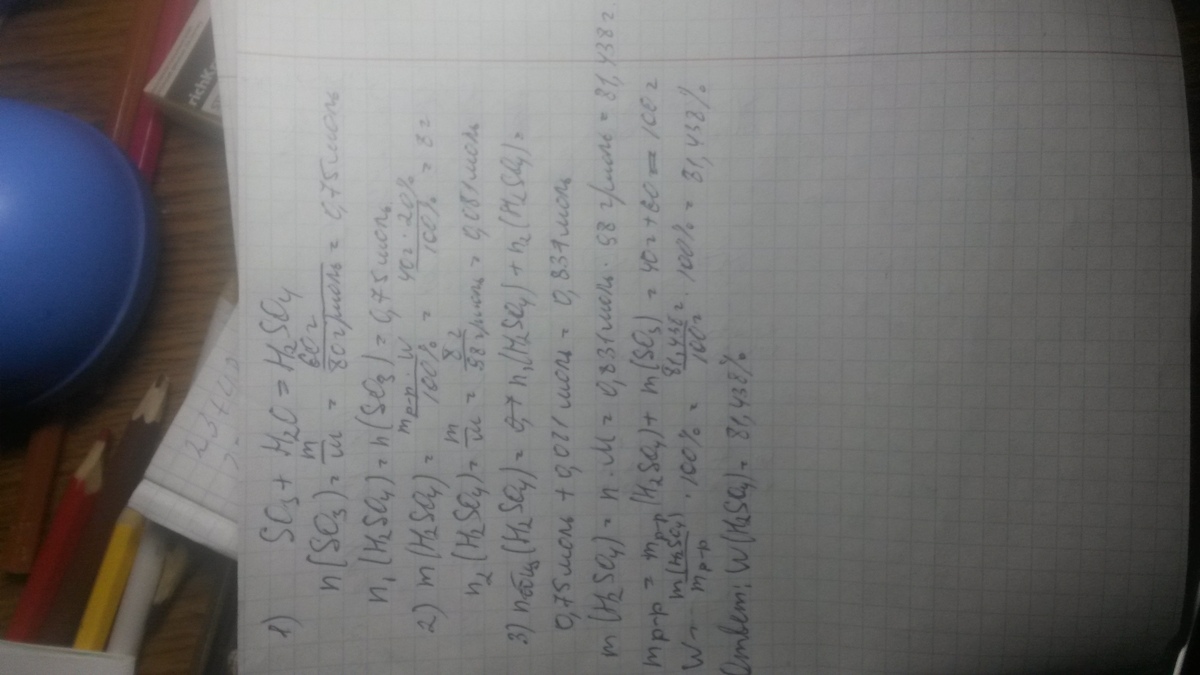 1) SO₃ + H₂O = H₂SO₄
n(SO₃) = m/M = 60 г/80 г/моль = 0,75 моль
n₁(H₂SO₄) = n(SO₃) = 0,75 моль
2) m(H₂SO₄) = mр-р · W/100% = 40 г · 20%/100% = 8 г
n₂(H₂SO₄) = m/M = 8 г/98 г/моль = 0,081 моль
3) nобщ(H₂SO₄) = n₁(H₂SO₄) + n₂(H₂SO₄) =
0,75 моль + 0,081 моль = 0,831 моль
m(H₂SO₄) = n · M = 0,831 моль · 98 г/моль = 81,438 г.
mр-р = mр-р(H₂SO₄) + m(SO₃) = 40 г + 60 = 100 г
W = m(H₂SO₄)/mр-р · 100% = 81,438 г/100 г · 100% = 81,438%
Ответ: W(H₂SO₄) = 81,438%